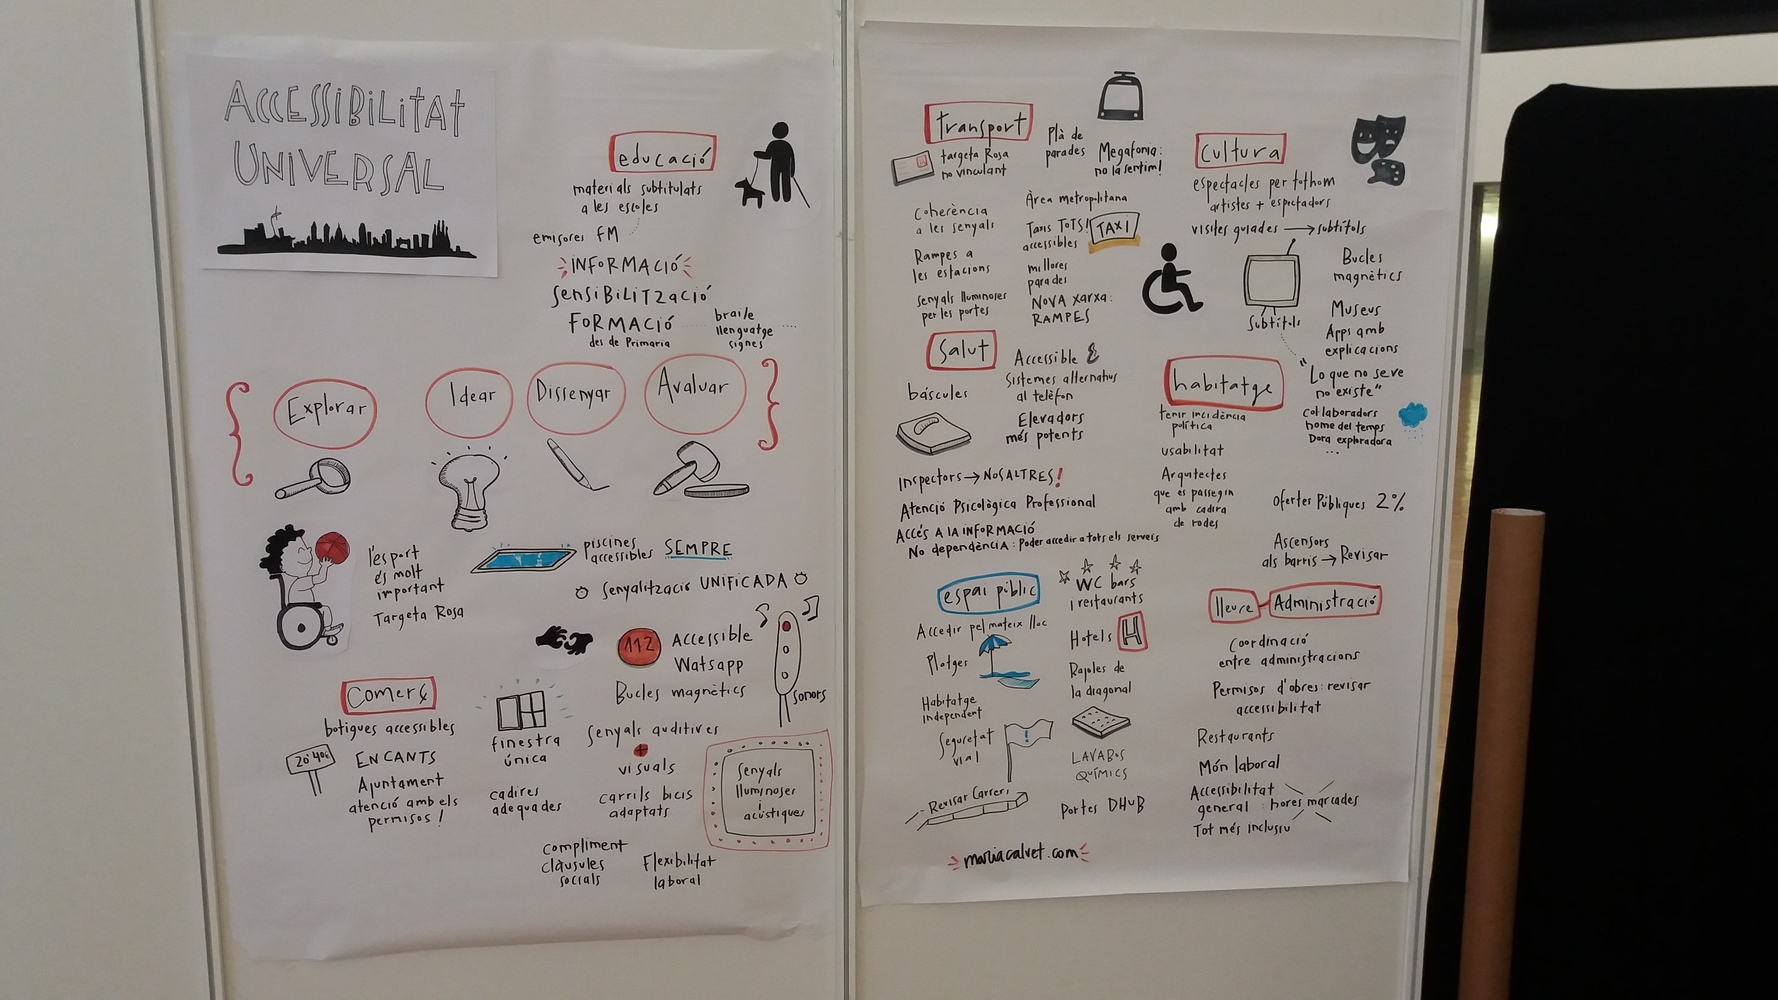 ACCESSIBILITAT
UNIVERSAL
educació
materials subtitulats
a les escoles
emisores FM
INFORMACIÓ
SENSIBILITZACIÓ
FORMACIÓ
des de Primaria
braile
llenguatge
signes
Explorar
Idear
Dissenyar
Avaluar
l'esport
és molt
important
Targeta Rosa
piscines
accessibles SEMPRE
Senyalització UNIFICADA
112
Accessible
Watsapp
Bucles magnètics
sonors
Comerç
botigues accessibles
ENCANTS
Ajuntament
atenció amb els
permisos!
finestra
única
cadires
adequades
Senyals auditives
+
visuals
carrils bicis
adaptats
Senyals
lluminoses
i
acústiques
compliment
clàusules
socials
Flexibilitat
laboral
transport
targeta Rosa
no vinculant
Plà de
parades
Megafonia:
no la sentim!
Coherència
a les senyals
Rampes a
les estacions
senyals lluminoses
per les portes
Àrea metropolitana
Taxis TOTS!
accessibles
TAXI
millores
parades
NOVA xarxa:
RAMPES
Cultura
espectacles per tothom
artistes + espectadors
visites guiades → subtítols
Subtítols
Bucles
magnètics
Museus
Apps amb
explicacions
"Lo que no se ve
no existe"
Col·laboradors
home del temps
Dora exploradora
...
Salut
báscules
Accessible
Sistemes alternatius
al telèfon
Elevadors
més potents
Inspectors → NOSALTRES!
Atenció Psicològica Professional
ACCÉS A LA INFORMACIÓ
No dependència: Poder accedir a tots els serveis
habitatge
tenir incidència
política
usabilitat
Arquitectes
que es passegin
amb cadira
de rodes
Ofertes Públiques 2%
Ascensors
als barris → Revisar
espai públic
Accedir pel mateix lloc
Platges
Habitatge
independent
Seguretat
vial
!
Revisar Carrers
WC bars
i restaurants
Hotels H
Rajoles de
la diagonal
LAVABOS
QUÍMICS
Portes DHUB
lleure
Administració
Coordinació
entre administracions
Permisos d'obres: revisar
accessibilitat
Restaurants
Món laboral
Accessibilitat
general: hores marcades
Tot més inclusiu
mariacalvet.com